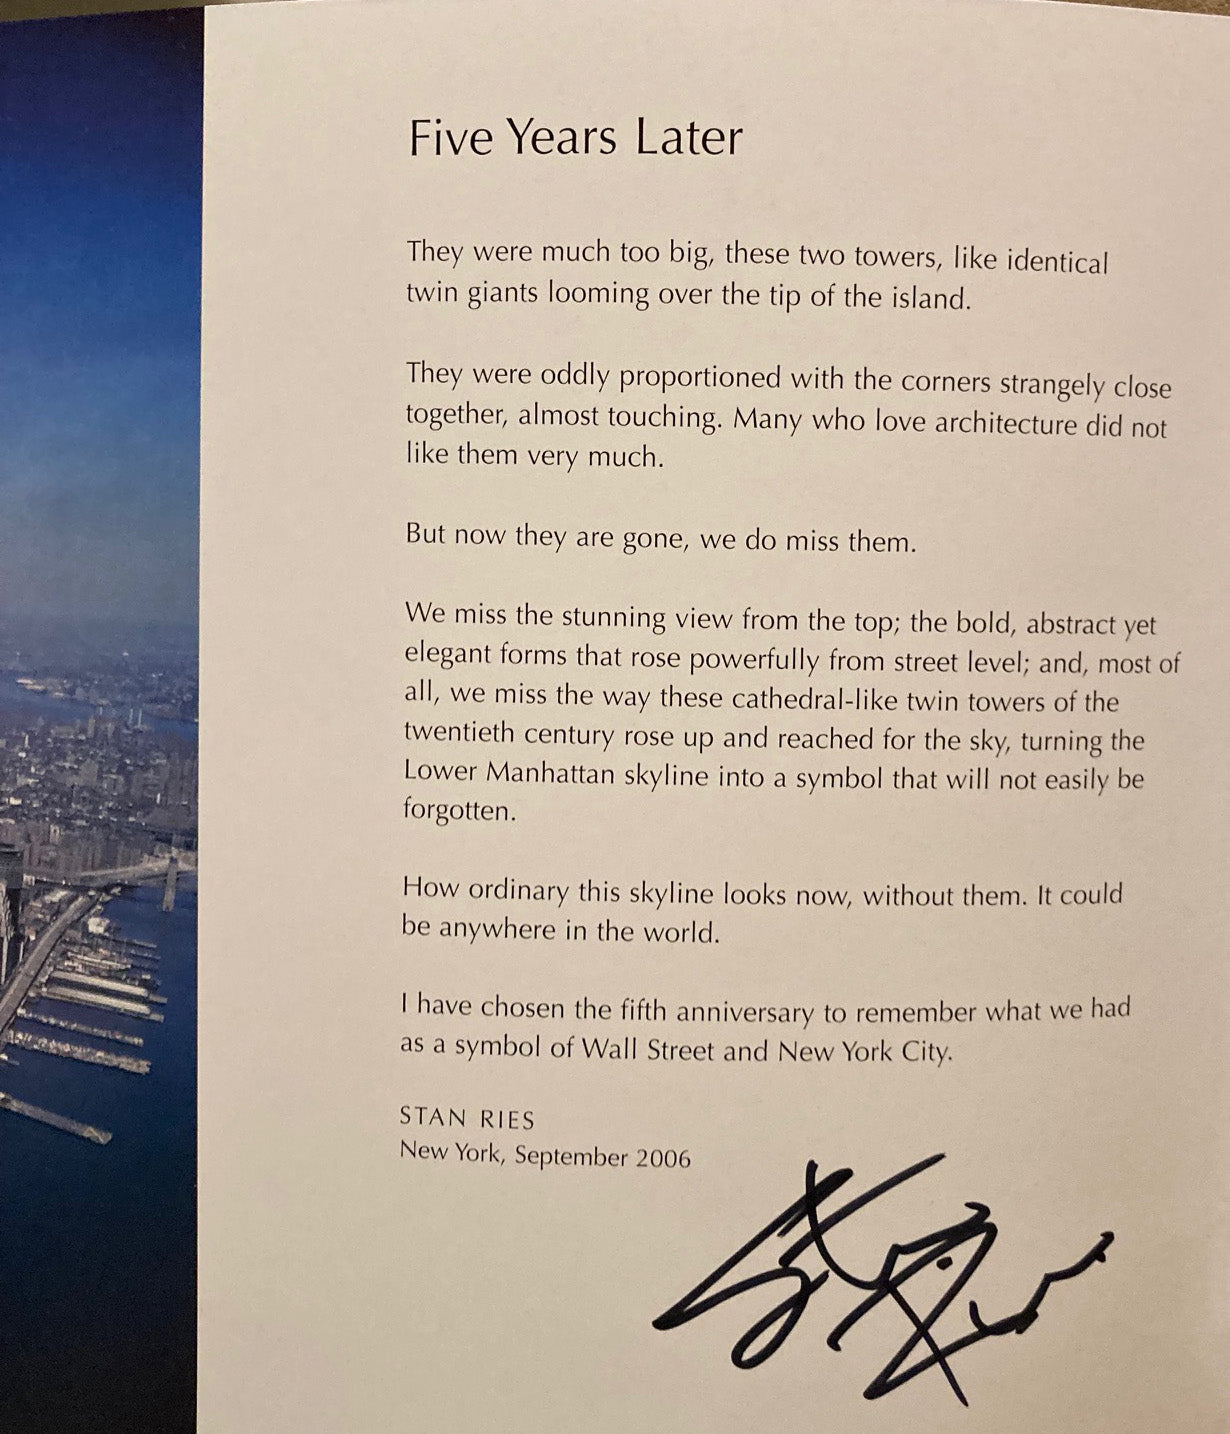 Five Years Later
They were much too big, these two towers, like identical
twin giants looming over the tip of the island.
They were oddly proportioned with the corners strangely close
together, almost touching. Many who love architecture did not
like them very much.
But now they are gone, we do miss them.
We miss the stunning view from the top; the bold, abstract yet
elegant forms that rose powerfully from street level; and, most of
all, we miss the way these cathedral-like twin towers of the
twentieth century rose up and reached for the sky, turning the
Lower Manhattan skyline into a symbol that will not easily be
forgotten.
How ordinary this skyline looks now, without them. It could
be anywhere in the world.
I have chosen the fifth anniversary to remember what we had
as a symbol of Wall Street and New York City.
STAN RIES
New York, September 2006